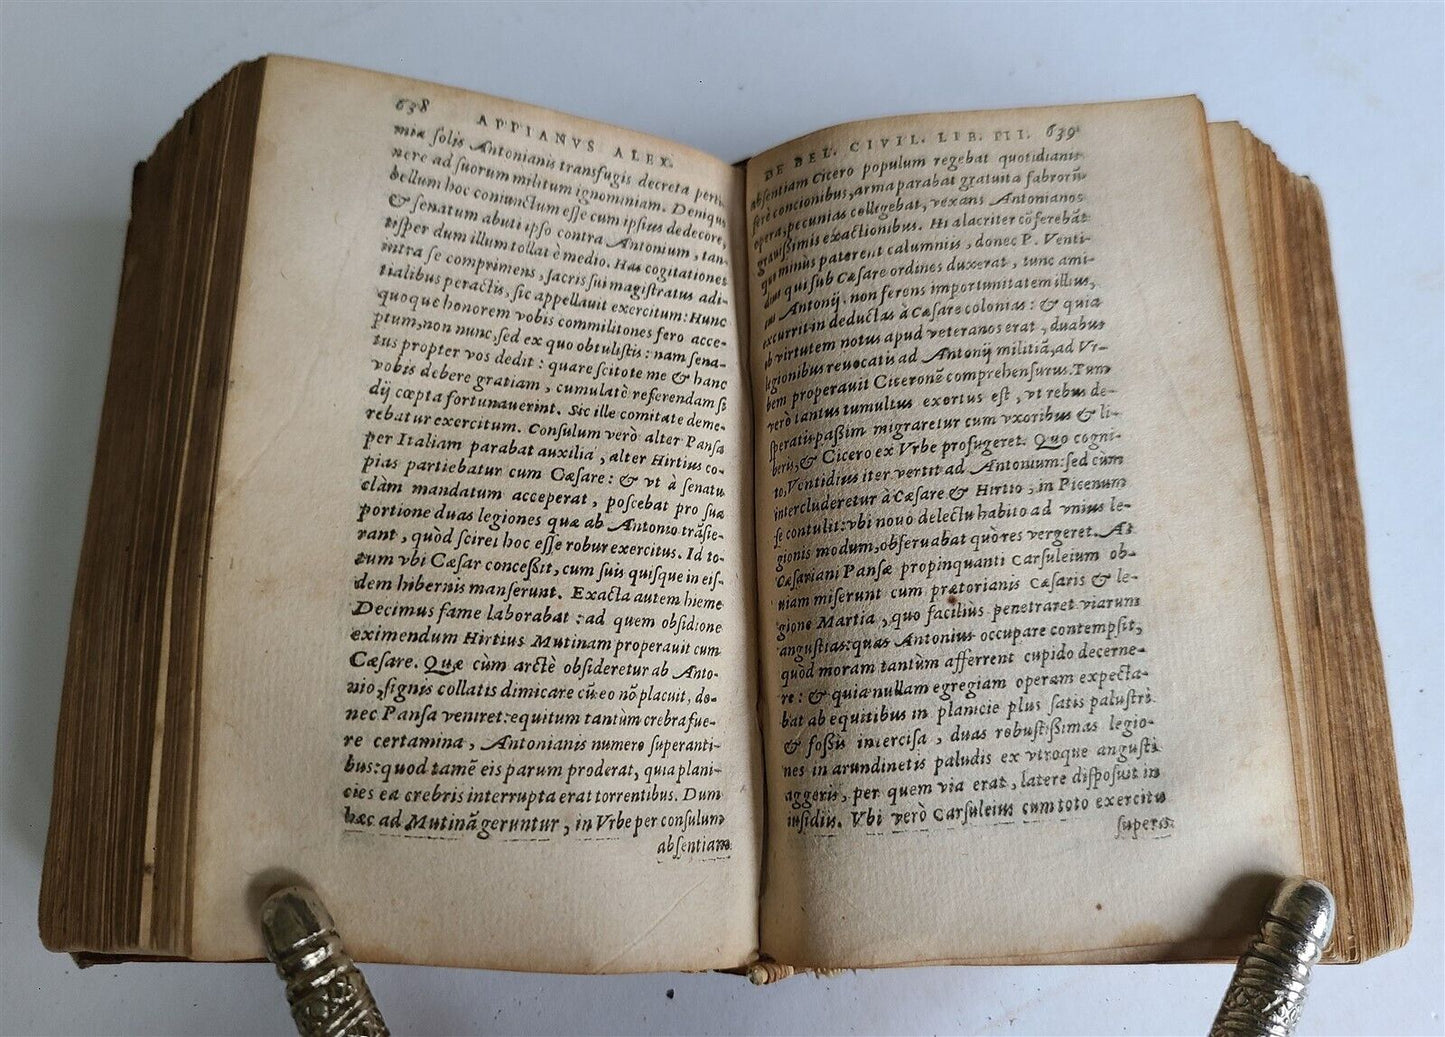 638 APPIANVS ALEX.
miæ ſolis Antonianis transfugis decreta perti-
nere ad ſuorum militum ignominiam. Denique
bellum hoc coniunctum eſſe cum ipſius dedecore,
& ſenatum abuti ipſo contra Antonium, tan-
tiſper dum illum tollat è medio. Has cogitationes
intra ſe comprimens, ſacris ſui magiſtratus adi-
tialibus peractis, ſic appellauit exercitum: Hunc
quoque honorem vobis commilitones fero acce-
ptum, non nunc, ſed ex quo obtuliſtis: nam ſena-
tus propter vos dedit: quare ſcitote me & hanc
vobis debere gratiam, cumulatè referendam ſi
dij cœpta fortunauerint. Sic ille comitate deme-
rebatur exercitum. Conſulum verò alter Panſa
per Italiam parabat auxilia, alter Hirtius co-
pias partiebatur cum Cæſare: & vt à ſenatu
clàm mandatum acceperat, poſcebat pro ſua
portione duas legiones quæ ab Antonio trāſie-
rant, quòd ſciret hoc eſſe robur exercitus. Id to-
tum vbi Cæſar conceßit, cum ſuis quiſque in eiſ-
dem hibernis manſerunt. Exacta autem hieme
Decimus fame laborabat: ad quem obſidione
eximendum Hirtius Mutinam properauit cum
Cæſare. Quæ cùm arctè obſideretur ab Anto-
nio, ſignis collatis dimicare cū eo nō placuit, do-
nec Panſa veniret: equitum tantùm crebra fue-
re certamina, Antonianis numero ſuperanti-
bus: quod tamē eis parum proderat, quia plani-
cies ea crebris interrupta erat torrentibus. Dum
hæc ad Mutinā geruntur, in Vrbe per conſulum
abſentiam
DE BEL. CIVIL. LIB. III. 639
abſentiam Cicero populum regebat quotidianis
ferè concionibus, arma parabat gratuita fabrorū
opera, pecunias colligebat, vexans Antonianos
grauißimis exactionibus. Hi alacriter cōferebāt
quo minùs paterent calumniis, donec P. Venti-
dius qui ſub Cæſare ordines duxerat, tunc ami-
cus Antonij, non ferens importunitatem illius,
excurrit in deductas à Cæſare colonias: & quia
ob virtutem notus apud veteranos erat, duabus
legionibus reuocatis ad Antonij militiā, ad Vr-
bem properauit Ciceronē comprehenſurus. Tum
verò tantus tumultus exortus eſt, vt rebus de-
ſperatis paßim migraretur cum vxoribus & li-
beris, & Cicero ex Vrbe profugeret. Quo cogni-
to, Ventidius iter vertit ad Antonium: ſed cùm
intercluderetur à Cæſare & Hirtio, in Picenum
ſe contulit: vbi nouo delectu habito ad vnius le-
gionis modum, obſeruabat quò res vergeret. At
Cæſariani Panſæ propinquanti Carſuleium ob-
uiam miſerunt cum prætorianis Cæſaris & le-
gione Martia, quo facilius penetraret viarum
anguſtias: quas Antonius occupare contempſit,
quòd moram tantùm afferrent cupido decerne-
re: & quia nullam egregiam operam expecta-
bat ab equitibus in planicie plus ſatis paluſtri
& foßis interciſa, duas robuſtißimas legio-
nes in arundinetis paludis ex vtroque anguſti
aggeris, per quem via erat, latere diſpoſuit in
inſidiis. Vbi verò Carſuleius cum toto exercitu
ſuperis